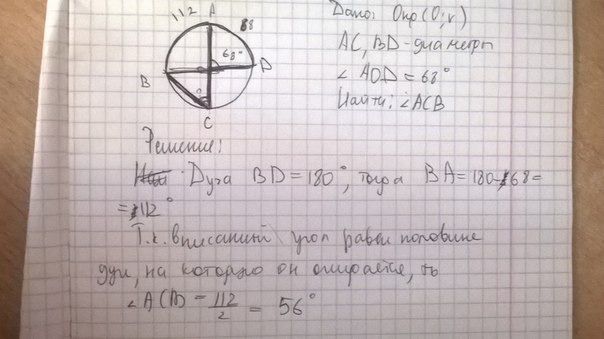 112 A 68
68°
B D
C
Дано: Окр(O; r)
AC, BD - диаметры
∠ AOD = 68°
Найти: ∠ACB
Решение:
Дуга BD = 180°, тогда BA = 180-68=
= 112°
Т.к. вписаный угол равен половине
дуги, на которую он опирается, то
∠ ACB = 112/2 = 56°